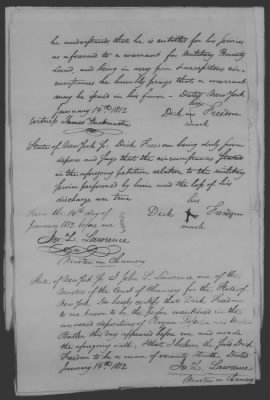 he understands that he is entitled for his services
as aforesaid to a warrant for Military Bounty
Land, and being in very poor circum
cumstances he humbly prays that a warrant
may be issued in his favor — Dated New York
January 14th 1812 his
Dick Freedom
Witness James mark
State of New York Ss. Dick Freedom being duly sworn
deposes and says that the circumstances stated
in the aforegoing petition relative to the military
service performed by him and the loss of his
discharge are true his
Sworn the 14th day of Dick X Freedom
January 1812 before me mark
Jno. L. Lawrence
Master in Chancery
State of New York Ss I John L. Lawrence one of the
Masters of the Court of Chancery for the State of
New York. Do hereby certify that Dick Freedom
to me known to be the person mentioned in the
annexed depositions of and
Butler this day appeared before me and made
the aforegoing oath; that I believe the said Dick
Freedom to be a man of veracity & truth, Dated
January 14th 1812
Jno. L. Lawrence
Master in Chancery